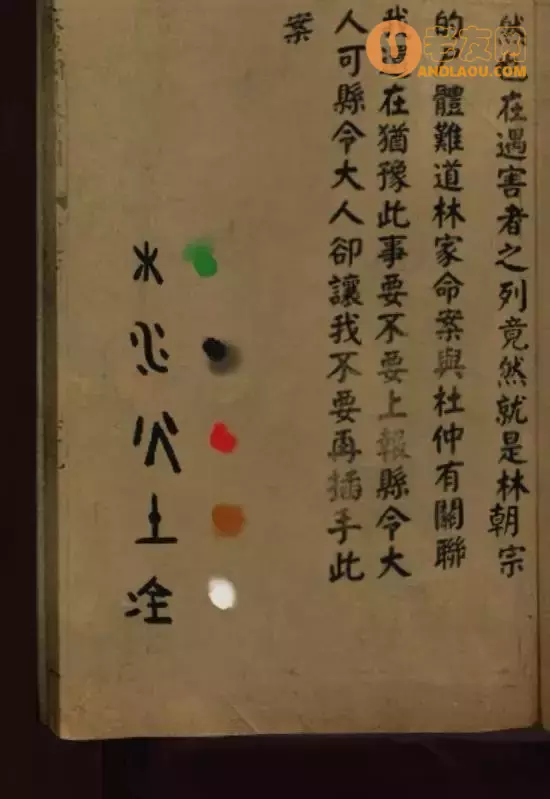 然也在遇害者之列竟然就是林朝宗
的尸體難道林家命案與杜仲有關聯
我還在猶豫此事要不要上報縣令大
人可縣令大人卻讓我不要再插手此
案
木
水
火
土
金
老友网
ANDLAOU.COM